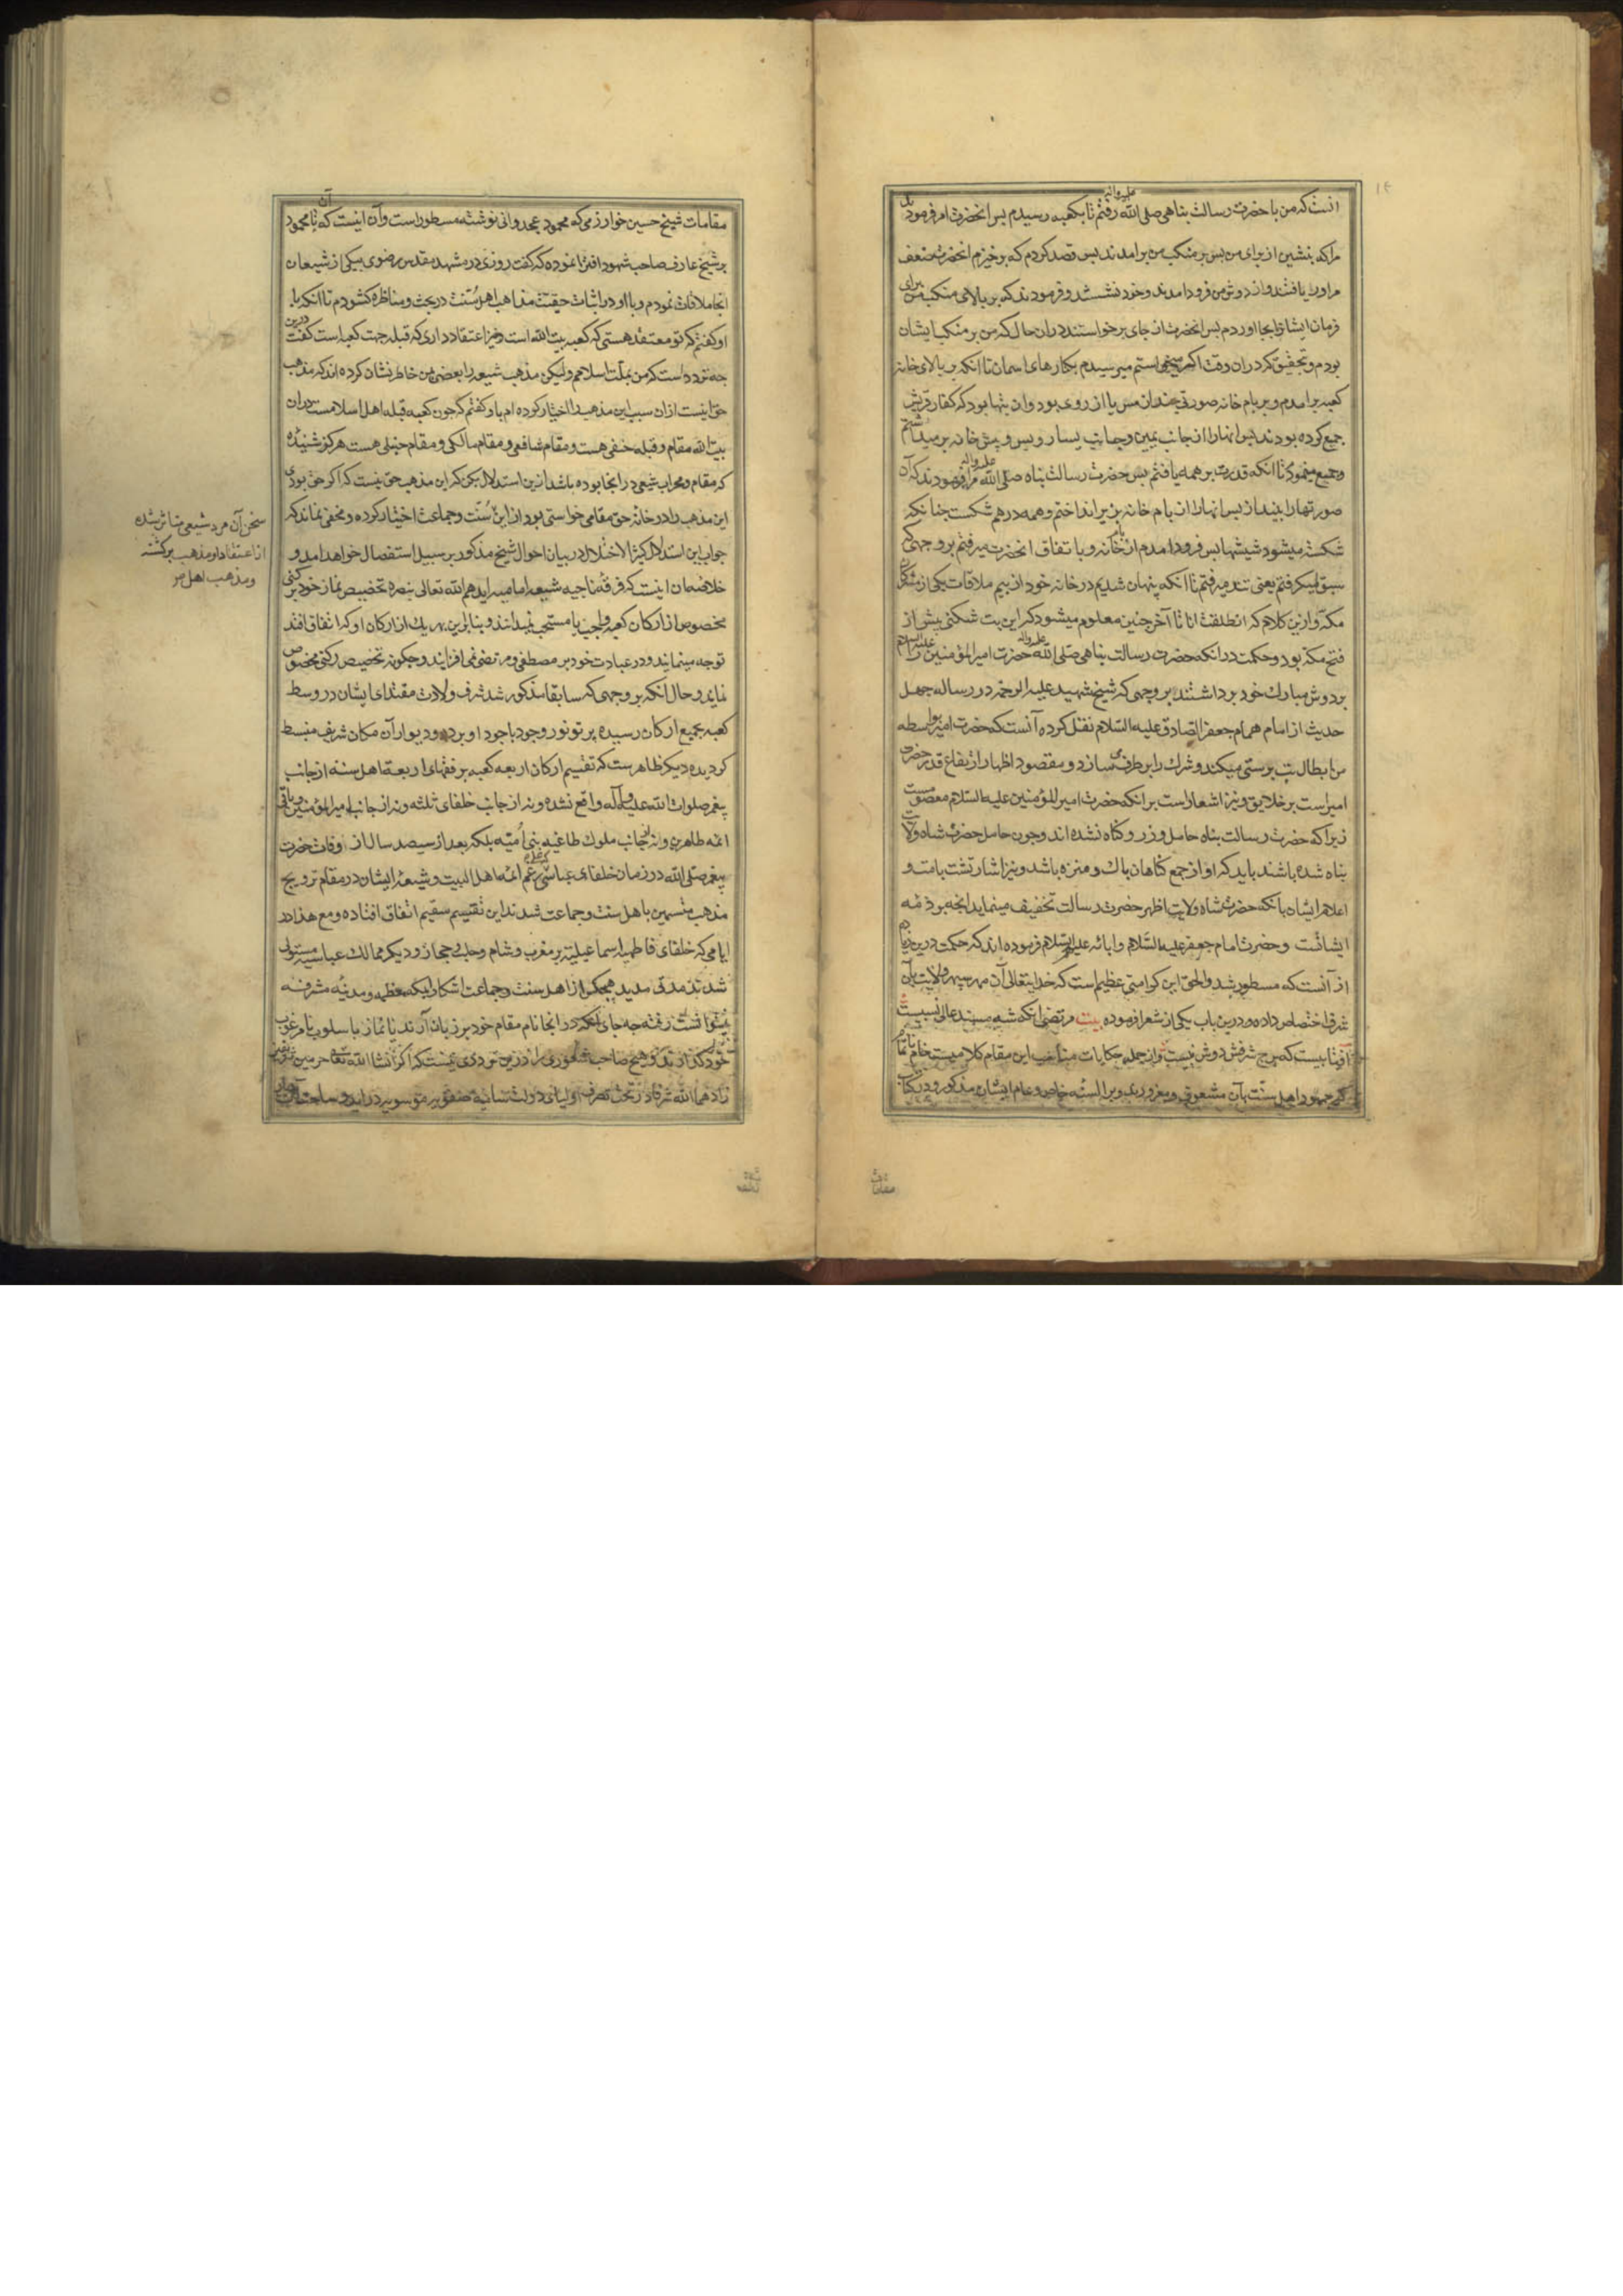 انست که من با حضرت رسالت پناهی صلی الله علیه واله رفتم تا بکعبه رسیدم پس انحضرت امر فرمود
مرا که بنشین از برای من پس بر منکب من برامدند پس قصد کردم که برخیزم انحضرت ضعف
مرا دریافتند و از دوش من فرود امدند و خود نشستند و فرمودند که بر بالای منکب من برای
فرمان ایشان را بجا اوردم پس انحضرت از جای برخواستند در ان حال که من بر منکب ایشان
بودم و تحقیق که در ان وقت اکر میخواستم میرسیدم بکنارهای اسمان تا انکه بر بالای خانه
کعبه برامدم و بر بام خانه صورتی چند از مس یا از روی بود وان بتها بود که کفار قریش
جمع کرده بودند پس انها را از جانب یمین و جانب یسار و پس و پیش خانه بر میداشتم
و جمع مینمودم تا انکه قدرت بر همه یافتم پس حضرت رسالت پناه صلی الله علیه واله مرا فرمودند که آن
صورتها را بینداز پس انها را از بام خانه بزیر انداختم و همه درهم شکست چنانکه
شکسته میشود شیشها پس فرود امدم از بام خانه و باتفاق انحضرت میرفتم بر وجهی که
سبق میکرفتم یعنی تند میرفتم تا انکه پنهان شدیم در خانه خود از بیم ملاقات یکی از مشرکان
مکه و ازین کلام که انطلقت انا تا آخر چنین معلوم میشود که این بت شکنی پیش از
فتح مکه بود و حکمت در انکه حضرت رسالت پناهی صلی الله علیه واله حضرت امیر المؤمنین علیه السلام را
بر دوش مبارك خود برداشتند بر وجهی که شیخ شهید علیه الرحمه در رساله چهل
حدیث از امام همام جعفر الصادق علیه السلام نقل کرده آنست که حضرت امیر بواسطه
من ابطال بت پرستی میکند و شرك را بر طرف می سازد و مقصود اظهار ارتفاع قدر حضرت
امیر است بر خلایق و نیز اشعار است بر انکه حضرت امیر المؤمنین علیه السلام معصومست
زیرا که حضرت رسالت پناه حامل وزر و کناه نشده اند و چون حامل حضرت شاه ولایت
پناه شده باشند باید که او از جمیع کناهان پاك و منزه باشد و نیز اشارتست بامت و
اعلام ایشان بانکه حضرت شاه ولایت از ظهر حضرت رسالت تخفیف مینماید انچه بر ذمه
ایشانست و حضرت امام جعفر علیه السلام و ابائه علیهم السلام فرموده اند که حکمت درین زیاده
از آنست که مسطور شد والحق این کرامتی عظیم است که خدایتعالی آن مهر سپهر ولایت بآن
شرف اختصاص داده و درین باب یکی از شعرا فرموده بیت مرتضی انکه شه مسند عالی نسبیست
آفتابیست که برج شرفش دوش نبیست و از جمله حکایات مناسب این مقام کلام میست خام ناتمام
که جمهور اهل سنت بآن مشعوف و مغرورند و بر السنه خاص و عام ایشان مذکور و در کتاب
مقامات
مقامات شیخ حسین خوارزمی که محمود غجدوانی نوشته مسطور است و آن اینست که آن نا محمود
بر شیخ عارف صاحب شهود افترا نموده که کفت روزی در مشهد مقدس رضوی بیکی از شیعیان
انجا ملاقات نمودم و با او در اثبات حقیت مذاهب اهل سنت در بحث و مناظره کشودم تا انکه با
او کفتم که تو معتقد هستی که کعبه بیت الله است و نیز اعتقاد داری که قبله جهت کعبه است کفت درین
چه تردد است که من بملت اسلامم ولیکن مذهب شیعه را بعضی بمن خاطر نشان کرده اند که مذهب
حق اینست از ان سبب این مذهب را اختیار کرده ام باز کفتم که چون کعبه قبله اهل اسلامست و در ان
بیت الله مقام و قبله حنفی هست و مقام شافعی و مقام مالکی و مقام حنبلی هست هرکز شنیده
که مقام و محراب شیعی در انجا بوده باشد ازین استدلال بکن که این مذهب حق نیست که اکر حق بودی
این مذهب را در خانه حق مقامی خواستی بود از این سنت و جماعت اختیار کرده و مخفی نماند که
جواب این استدلال کثیر الاختلال در بیان احوال شیخ مذکور بر سبیل استفصال خواهد امد و
خلاصه ان اینست که فرقه ناجیه شیعه امامیه ایدهم الله تعالی بنصره تخصیص نماز خود برکنی
مخصوص از ارکان کعبه واجب یا مستحب نمیدانند و بنابراین بهر یك از ارکان او که اتفاق افتد
توجه مینمایند و در عبادت خود بر مصطفی و مرتضی نمی افزایند و چکونه تخصیص رکنی مخصوص
نمایند و حال انکه بر وجهی که سابقا مذکور شد شرف ولادت مقتدای ایشان در وسط
کعبه بجمیع ارکان رسیده پرتو نور وجود با جود او بر در و دیوار آن مکان شریف منبسط
کردیده دیکر ظاهرست که تقسیم ارکان اربعه کعبه بر فقهای اربعة اهل سنه از جانب
پیغمبر صلوات الله علیه وآله واقع نشده و نه از جانب خلفای ثلثه و نه از جانب امیر المؤمنین و باقی
ائمه طاهرین و نه از جانب ملوك طاغیه بنی امیه بلکه بعد از سیصد سال از وفات حضرت
پیغمبر صلی الله در زمان خلفای عباسی که علی رغم ائمه اهل البیت و شیعه ایشان در مقام ترویج
مذهب متسمین باهل سنت و جماعت شدند این تقسیم سقیم اتفاق افتاده و مع هذا در
ایامی که خلفای فاطمیه اسماعیلیه بر مغرب و شام و حلب و حجاز و دیکر ممالك عباسیه مستولی
شدند مدتی مدید هیچکس از اهل سنت و جماعت اشکارا بمکه معظمه و مدینه مشرفه
نمیتوانست رفت چه جای انکه در انجا نام مقام خود بر زبان آرند یا نماز باسلوب نامرغوب
خود کذارند و هیچ صاحب شعوری را درین تردد نیست که اکر انشا الله تعالی حرمین شریفین
زادهما الله شرفا در تحت تصرف اولیای دولت صفویه موسویه درآید و ساحت آن
سخن آن مرد شیعی متاثر شده
از اعتقاد او مذهب برکشته
و مذهب اهل